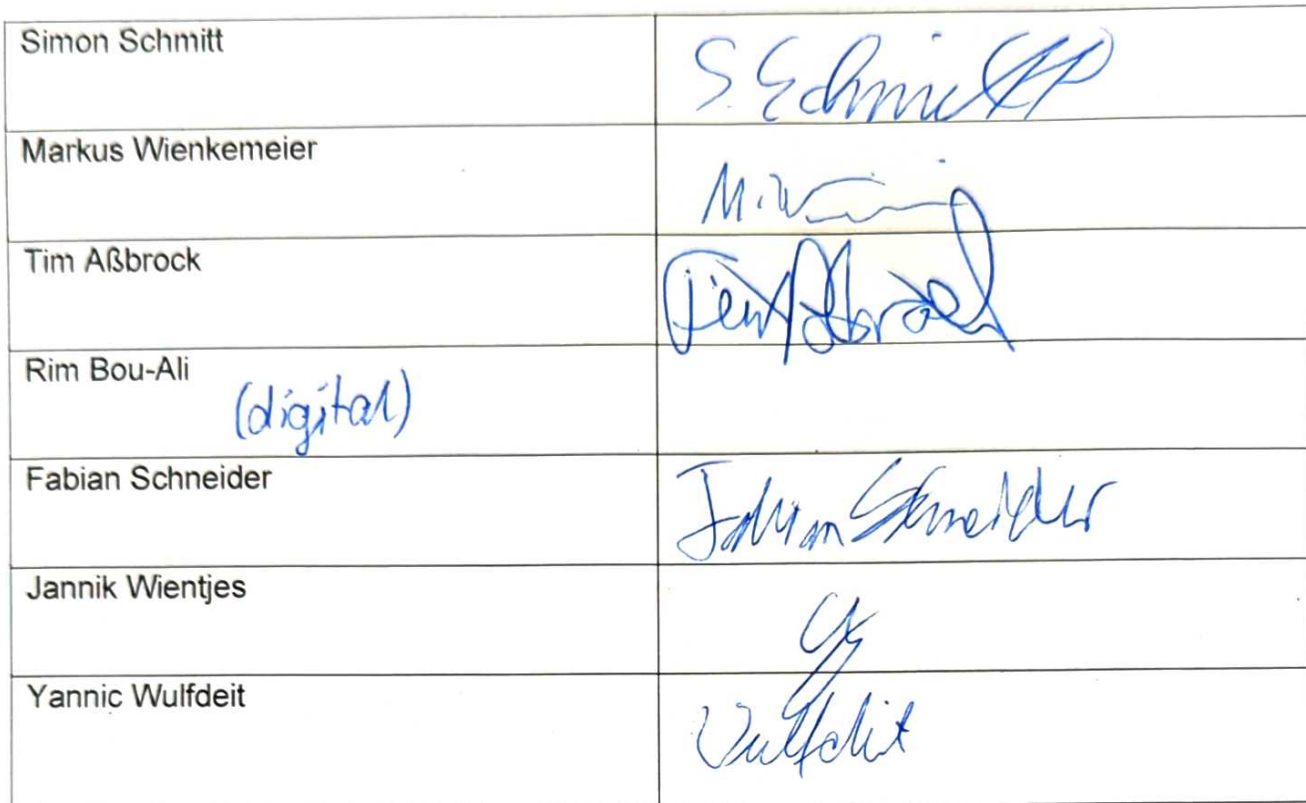 Simon Schmitt
S. Schmitt
Markus Wienkemeier
M. W
Tim Aßbrock
Tim Aßbrock
Rim Bou-Ali
(digital)
Fabian Schneider
Fabian Schneider
Jannik Wientjes
Yannic Wulfdeit
Wulfdeit